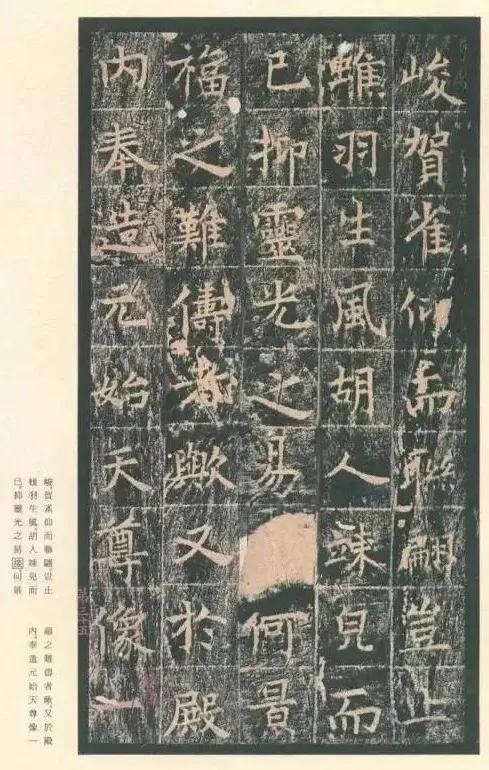 峻賀雀仰而聯翩豈止
羽生風胡人竦皃而
已抑靈光之易何景
福之難儔者歟又於殿
內奉造元始天尊像一
第三十五
峻賀雀仰而聯翩豈止
羽生風胡人竦皃而
已抑靈光之易何景
福之難儔者歟又於殿
內奉造元始天尊像一